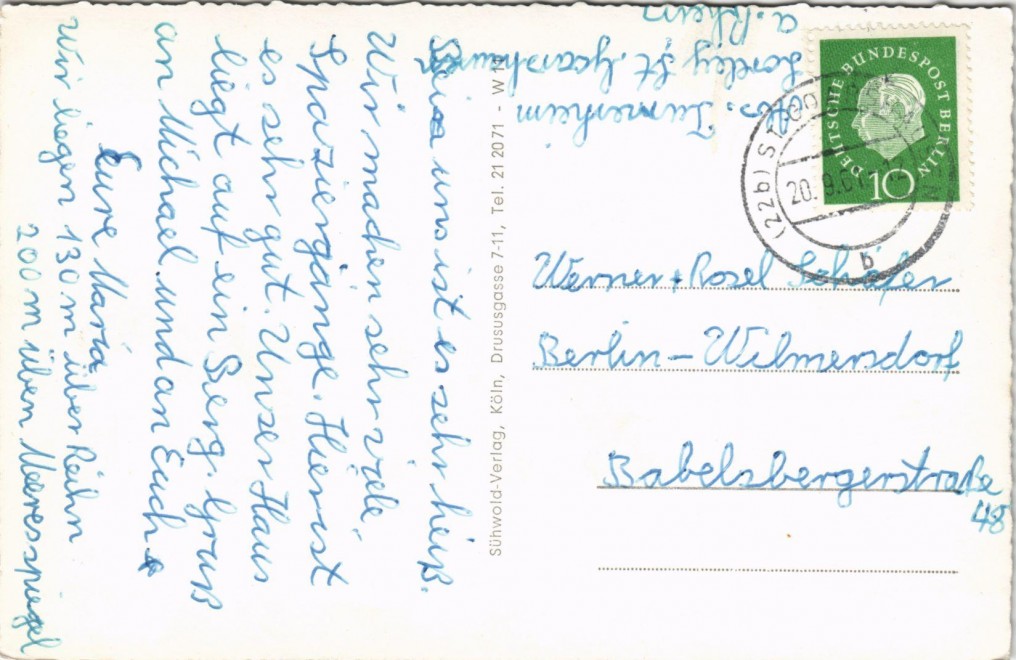 Bei uns ist es sehr heiß.
Wir machen sehr viele
Spaziergänge. Hier ist
es sehr gut. Unser Haus
liegt auf ein Berg. Gruß
an Michael und an Euch
Eure Maria
Wir liegen 130 m über Reihn
200 m üben Meeresspiegel
Sühwold-Verlag, Köln, Drususgasse 7-11, Tel. 21 2071 - W
a. Rhein
Lorley St. Goarshausen
Abs. Turnerheim
DEUTSCHE BUNDESPOST BERLIN
10
(22b) ST. GO
20. 9. 61
b
Werner + Rosel Schäfer
Berlin - Wilmersdorf
Babelsbergerstraße
48